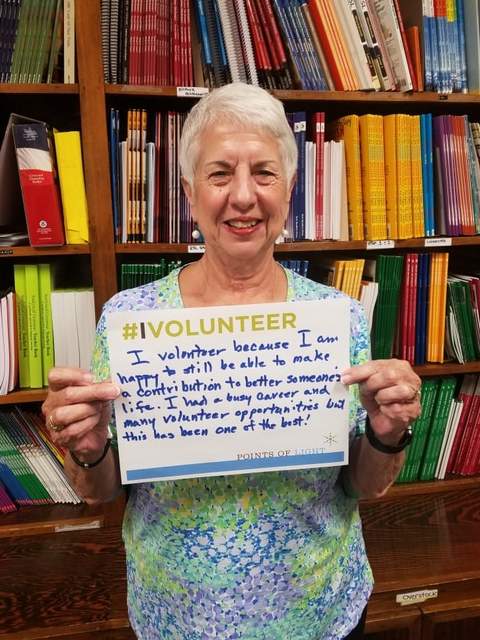 #IVOLUNTEER
I volunteer because I am
happy to still be able to make
a contribution to better someone's
life. I had a busy career and
many volunteer opportunities but
this has been one of the best!
POINTS OF LIGHT
Overstock